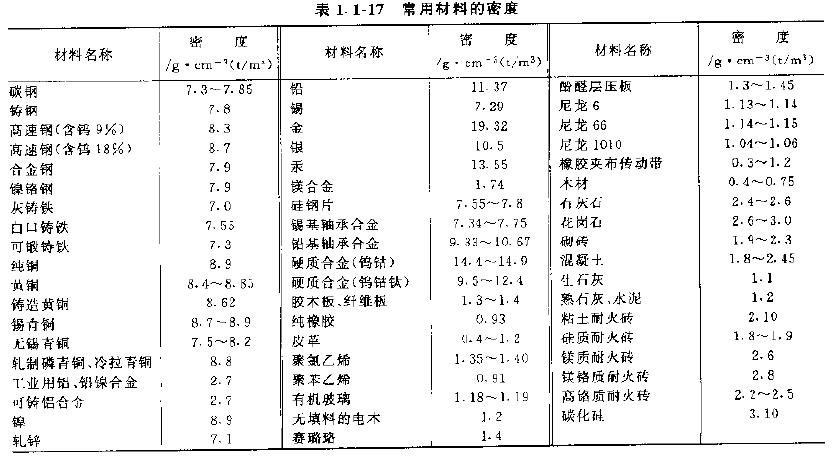 表 1.1-17 常用材料的密度
材料名称 密 度 /g·cm⁻³(t/m³) 材料名称 密 度 /g·cm⁻³(t/m³) 材料名称 密 度 /g·cm⁻³(t/m³)
碳钢 7.3～7.85 铅 11.37 酚醛层压板 1.3～1.45
铸钢 7.8 锡 7.29 尼龙6 1.13～1.14
高速钢(含钨9%) 8.3 金 19.32 尼龙66 1.14～1.15
高速钢(含钨18%) 8.7 银 10.5 尼龙1010 1.04～1.06
合金钢 7.9 汞 13.55 橡胶夹布传动带 0.3～1.2
镍铬钢 7.9 镁合金 1.74 木材 0.4～0.75
灰铸铁 7.0 硅钢片 7.55～7.8 石灰石 2.4～2.6
白口铸铁 7.55 锡基轴承合金 7.34～7.75 花岗石 2.6～3.0
可锻铸铁 7.3 铅基轴承合金 9.33～10.67 砌砖 1.9～2.3
纯铜 8.9 硬质合金(钨钴) 14.4～14.9 混凝土 1.8～2.45
黄铜 8.4～8.85 硬质合金(钨钴钛) 9.5～12.4 生石灰 1.1
铸造黄铜 8.62 胶木板、纤维板 1.3～1.4 熟石灰、水泥 1.2
锡青铜 8.7～8.9 纯橡胶 0.93 粘土耐火砖 2.10
无锡青铜 7.5～8.2 皮革 0.4～1.2 硅质耐火砖 1.8～1.9
轧制磷青铜、冷拉青铜 8.8 聚氯乙烯 1.35～1.40 镁质耐火砖 2.6
工业用铝、铝镍合金 2.7 聚苯乙烯 0.91 镁铬质耐火砖 2.8
可铸铝合金 2.7 有机玻璃 1.18～1.19 高铬质耐火砖 2.2～2.5
镍 8.9 无填料的电木 1.2 碳化硅 3.10
轧锌 7.1 赛璐珞 1.4